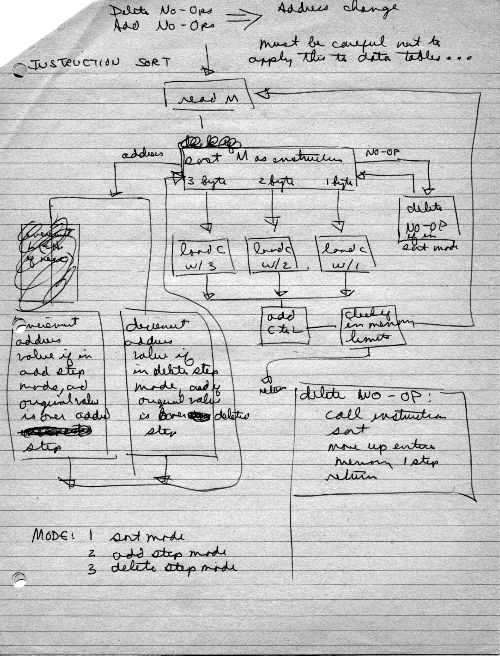 Delete No-Ops
Add No-Ops
Address change
must be careful not to
apply this to data tables...
INSTRUCTION SORT
read M
sort M as instruction
3 byte 2 byte 1 byte
address
NO-OP
delete
NO-OP
if in
sort mode
load C
w/3
load C
w/2
load C
w/1
add
C to L
check if
in memory
limits
return
increment
address
value if in
add step
mode, and
original value
is over
step
decrement
address
value if
in delete step
mode and if
original value
is
step
delete NO-OP:
call instruction
sort
move up entire
memory 1 step
return
MODE: 1 sort mode
2 add step mode
3 delete step mode